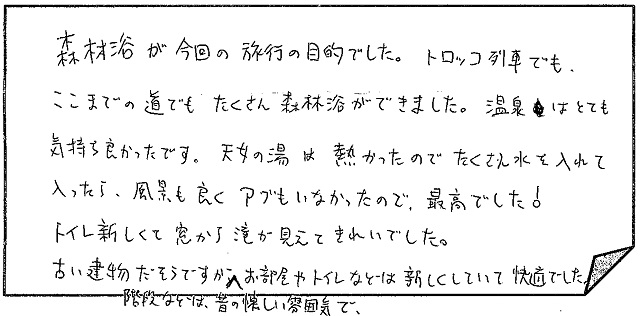 森林浴が今回の旅行の目的でした。トロッコ列車でも、
ここまでの道でもたくさん森林浴ができました。温泉はとても
気持ち良かったです。天女の湯は熱かったのでたくさん水を入れて
入ったら、風景も良くアブもいなかったので、最高でした!
トイレ新しくて窓から滝が見えてきれいでした。
古い建物だそうですが、お部屋やトイレなどは新しくしていて快適でした。
階段などは、昔の懐しい雰囲気で、